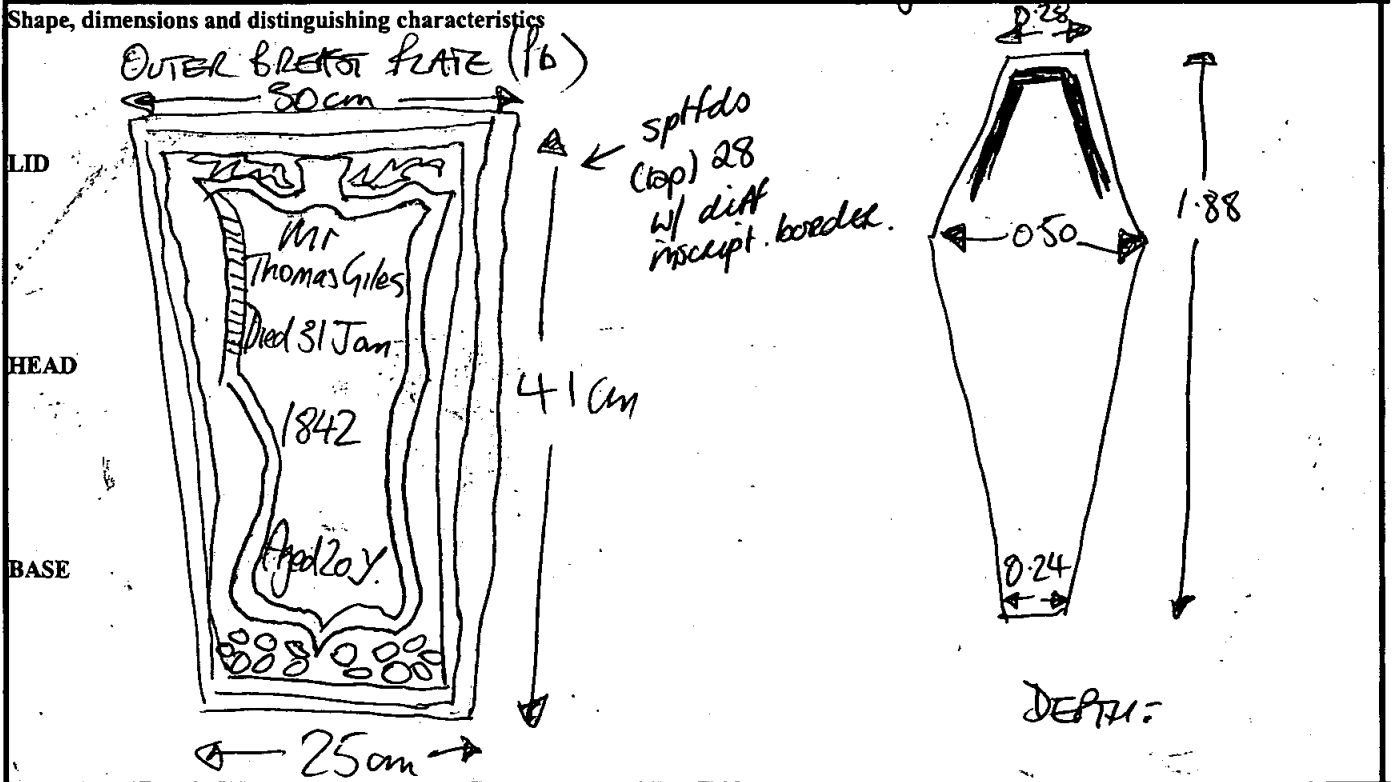 Shape, dimensions and distinguishing characteristics
OUTER BREAST PLATE (Pb)
30cm
LID
HEAD
BASE
Mr
Thomas Giles
Died 31 Jan
1842
Aged 20 y.
41 cm
25cm
spitfds
(top) 28
w/ diff
inscript. border.
0.28
0.50
1.88
0.24
DEPTH: